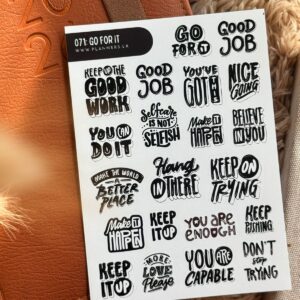 202
071: GO FOR IT
WWW.PLANNERS.LK
GO
FOR IT
GOOD
JOB
KEEP UP THE
GOOD
WORK
GOOD
JOB
YOU'VE
GOT IT
NICE
GOING
YOU CAN
DO IT
Selfcare
IS NOT
SELFISH
Make it
HAPPEN
BELIEVE
IN YOU
MAKE THE WORLD
A
BETTER
PLACE
Hang
IN THERE
KEEP ON
TRYING
Make it
HAPPEN
KEEP
IT UP
YOU ARE
ENOUGH
KEEP
PUSHING
KEEP
IT UP
MORE
LOVE
Please
YOU ARE
CAPABLE
DON'T
stop
TRYING